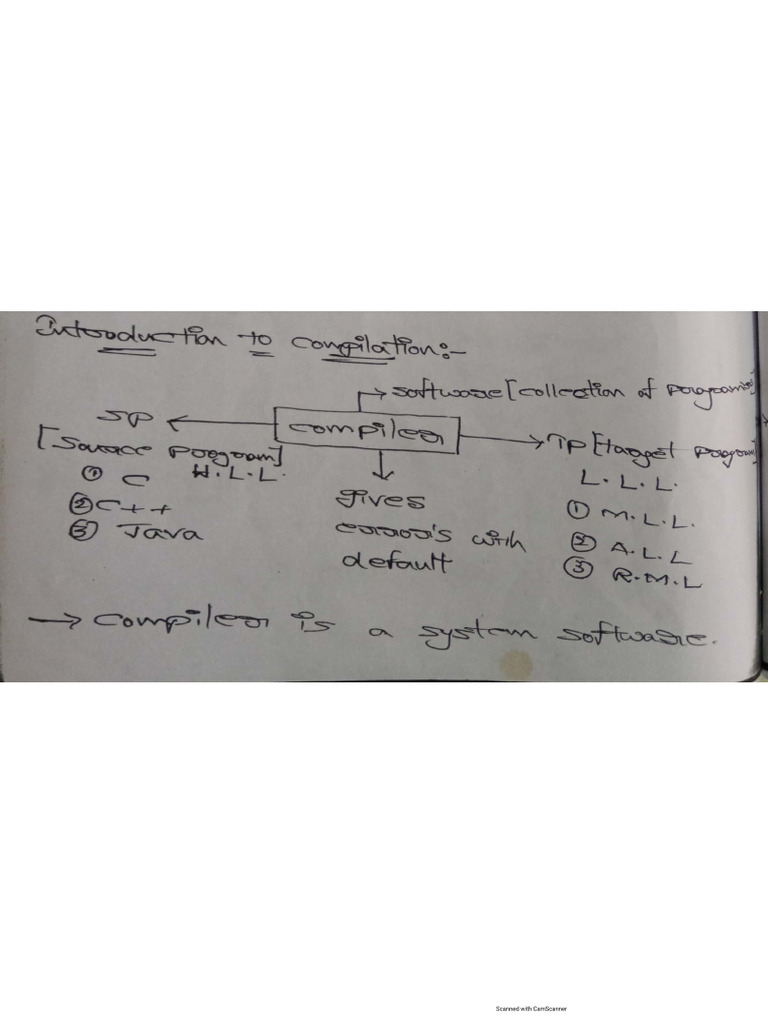 Introduction to compilation:-
→ software [collection of programs]
SP ← compiler → TP [target program]
[Source program]
H.L.L. L.L.L.
① C gives ① M.L.L.
② C++ errors with ② A.L.L
③ Java default ③ R.M.L
→ compiler is a system software.
Scanned with CamScanner